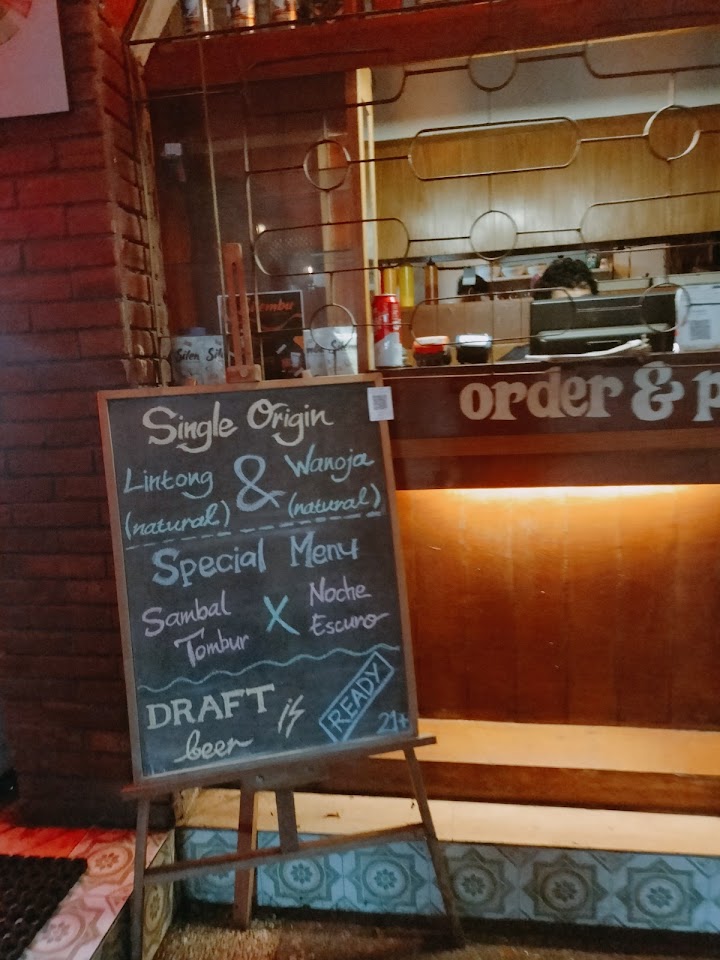 Single Origin
Lintong & Wanoja
(natural) (natural)
Special Menu
Sambal Tombur X Noche Escuro
DRAFT is READY
beer 21+
order & p